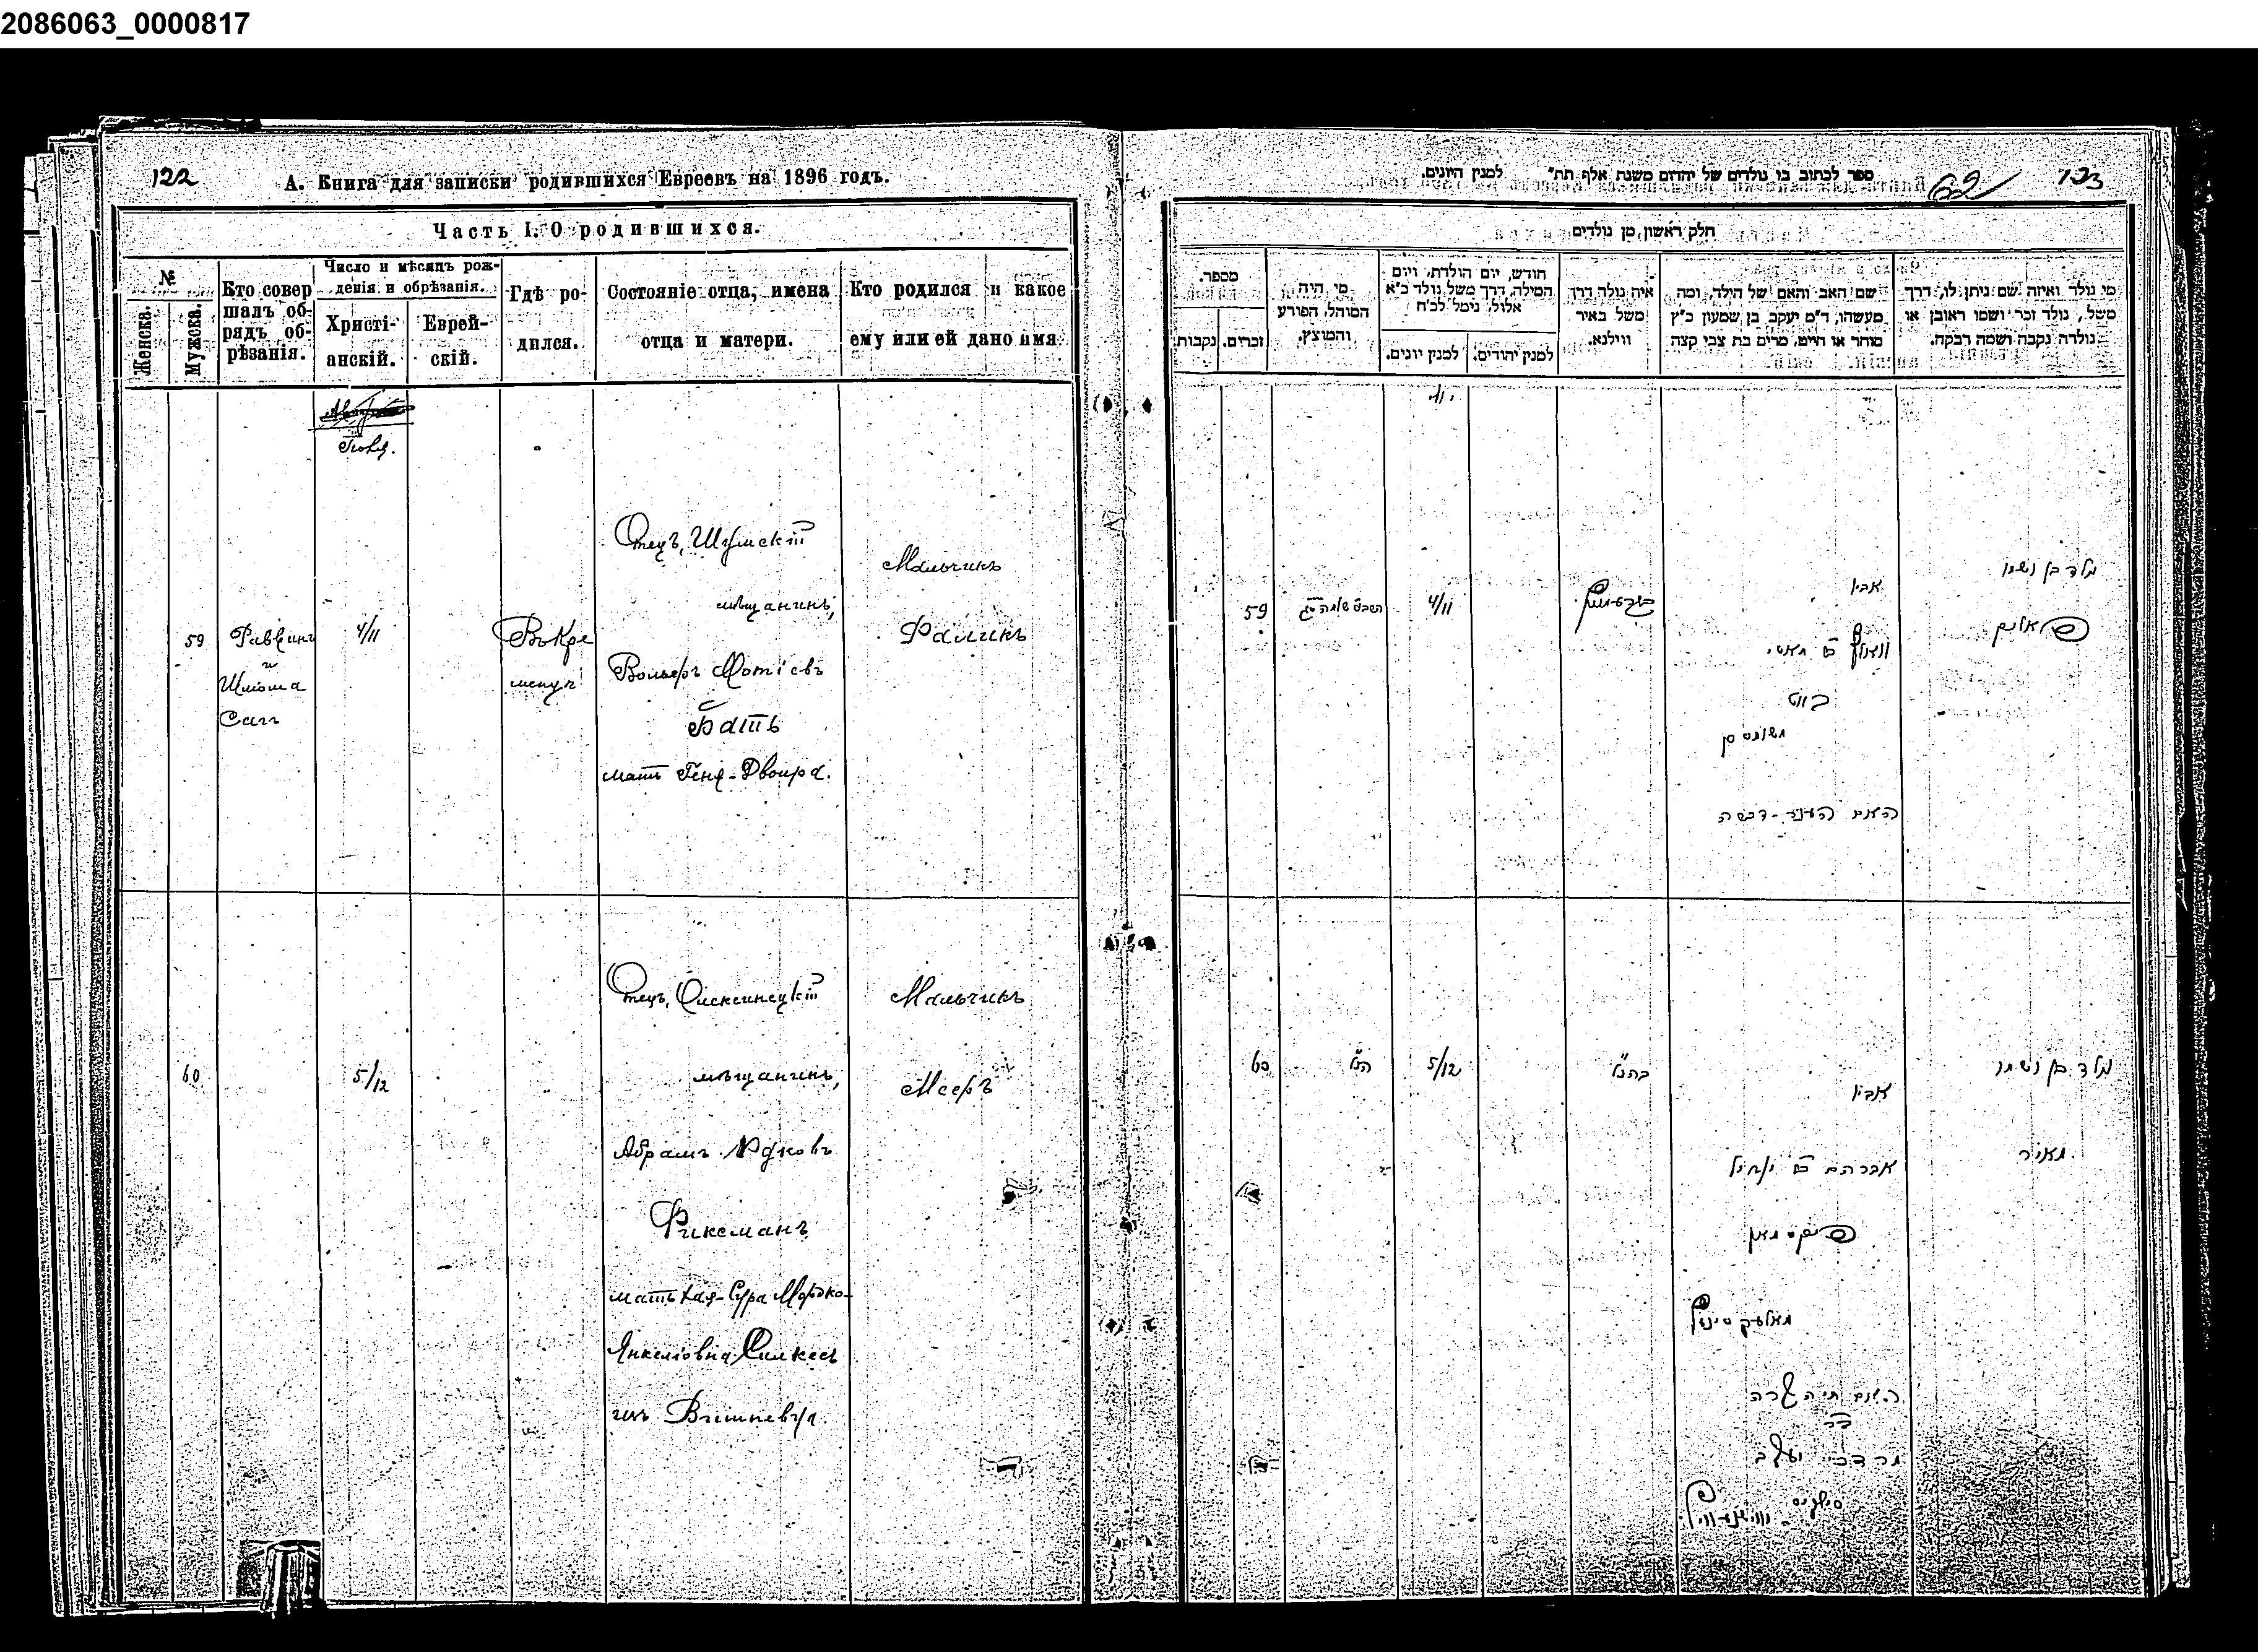 2086063_0000817
122
А. Книга для записки родившихся Евреевъ на 1896 годъ.
Часть I. О родившихся.
№
Женска.
Мужска.
Кто совер
шалъ об-
рядъ об-
рѣзанія.
Число и мѣсяцъ рож-
денія и обрѣзанія.
Христі-
анскій.
Еврей-
скій.
Гдѣ ро-
дился.
Состояніе отца, имена
отца и матери.
Кто родился и какое
ему или ей дано имя.
59
Раввинъ
и
Шлёма
Сагъ
4/11
Въ Кре
менцѣ
Отецъ, Шумскій
мѣщанинъ,
Вольфъ Мотіевъ
Батъ
мать Геня-Двойра.
Мальчикъ
Фаликъ
60
5/12
Отецъ,
мѣщанинъ,
Абрамъ
Фиксманъ
мать Хая-Сура Мордко-
Янкеліовна
Мальчикъ
Мееръ
ספר לכתוב בו נולדים של יהדים משנת אלף תת" למנין היונים.
62
123
חלק ראשון מן נולדים
מספר.
נקבות.
זכרים.
מי היה
המוהל, הפורע
והמוצץ.
חודש, יום הולדת, ויום
המילה, דרך משל נולד כ"א
אלול, נימל לכ"ח
למנין יונים.
למנין יהודים.
איה נולד דרך
משל באיר
ווילנא.
שם האב והאם של הילד, ומה
מעשהו, ד"מ יעקב בן שמעון כ"ץ
סוחר או חייט, מרים בת צבי קצה
מי נולד ואיזה שם ניתן לו, דרך
משל, נולד זכר ושמו ראובן או
נולדה נקבה ושמה רבקה.
59
4/11
אביו
וואלף ב"ר מאטי
באט
נולד בן ושמו
פאליק
60
הנ"ל
5/12
בהנ"ל
אביו
אברהם ב"ר
פיקסמאן
האם חיה שרה
בר
מרדכי יעקב
נולד בן ושמו
מאיר